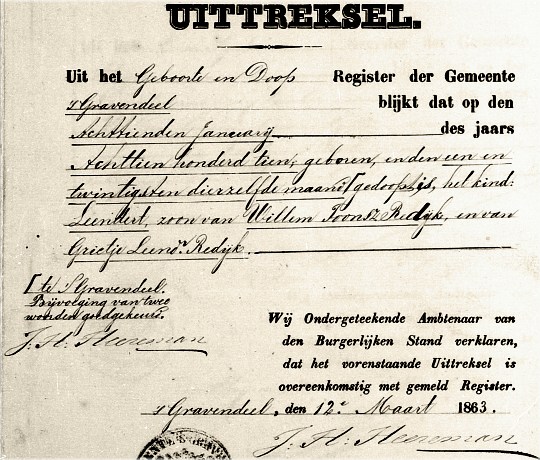 UITTREKSEL.
Uit het Geboorte en Doop Register der Gemeente
s Gravendeel blijkt dat op den
Achttienden January des jaars
Achttien honderd tien, geboren, en den een en
twintigsten dierzelfde maand [gedoopt is, het kind:
Leendert, zoon van Willem Toonsz Redijk, en van
Grietje Leendr. Redijk.
[te S Gravendeel.
Bijvoeging van twee
woorden goedgekeurd.
J. H. Heereman
Wij Ondergeteekende Ambtenaar van
den Burgerlijken Stand verklaren,
dat het vorenstaande Uittreksel is
overeenkomstig met gemeld Register.
s Gravendeel, den 12e Maart 1863.
J. H. Heereman